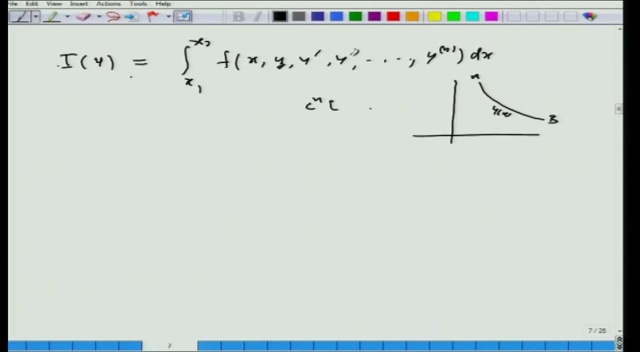 File Edit View Insert Actions Tools Help
I(y) = ∫_{x₁}^{x₂} f(x, y, y', y'', ----, y⁽ⁿ⁾) dx
cⁿ[
A
y(x)
B
7 / 25
7